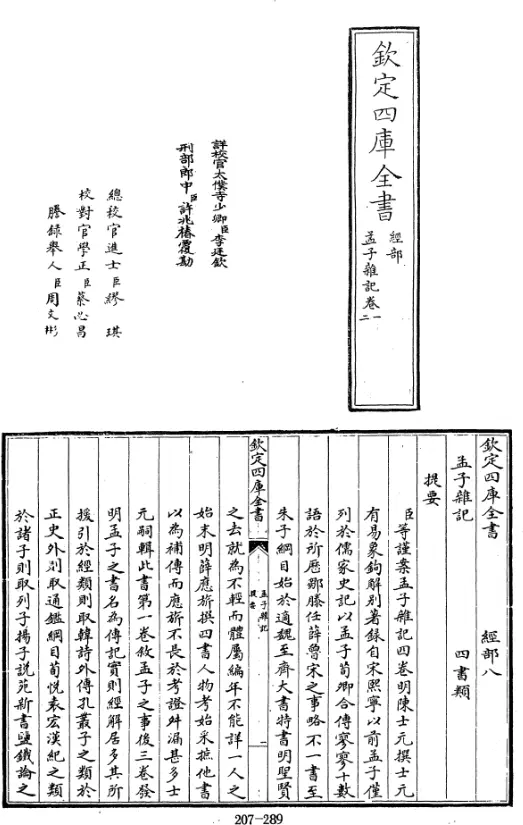 欽定四庫全書
經部
孟子雜記卷一
二
詳校官太僕寺少卿臣李廷欽
刑部郎中臣許兆椿覆勘
總校官進士臣繆琪
校對官學正臣蔡必昌
謄錄舉人臣周文彬
欽定四庫全書 經部八
孟子雜記 四書類
提要
臣等謹案孟子雜記四卷明陳士元撰士元
有易象鉤解别著錄自宋熙寧以前孟子僅
列於儒家史記以孟子荀卿合傳寥寥十數
語於所歴鄒滕任薛魯宋之事略不一書至
朱子綱目始於適魏至齊大書特書明聖賢
欽定四庫全書
孟子雜記
提要
一
之去就為不輕而體屬編年不能詳一人之
始末明薛應旂撰四書人物考始采摭他書
以為補傳而應旂不長於考證舛漏甚多士
元嗣輯此書第一卷敘孟子之事後三卷發
明孟子之書名為傳記實則經解居多其所
援引於經類則取韓詩外傳孔叢子之類於
正史外則取通鑑綱目荀悅袁宏漢紀之類
於諸子則取列子揚子說苑新書鹽鐵論之
207-289